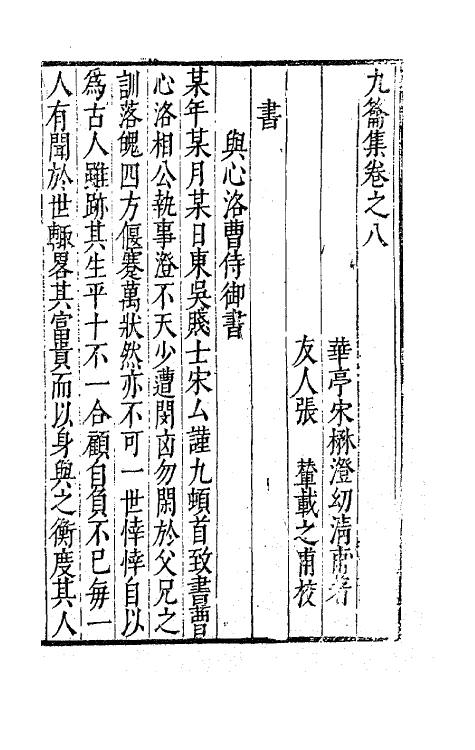 九籥集卷之八
華亭宋楙澄幼清甫著
友人張 輦載之甫校
書
與心洛曹侍御書
某年某月某日東吳賤士宋厶謹九頓首致書曹
心洛相公執事澄不天少遭閔凶勿閑於父兄之
訓落魄四方偃蹇萬狀然亦不可一世悻悻自以
為古人雖跡其生平十不一合顧自負不已每一
人有聞於世輒畧其富貴而以身與之衡度其人